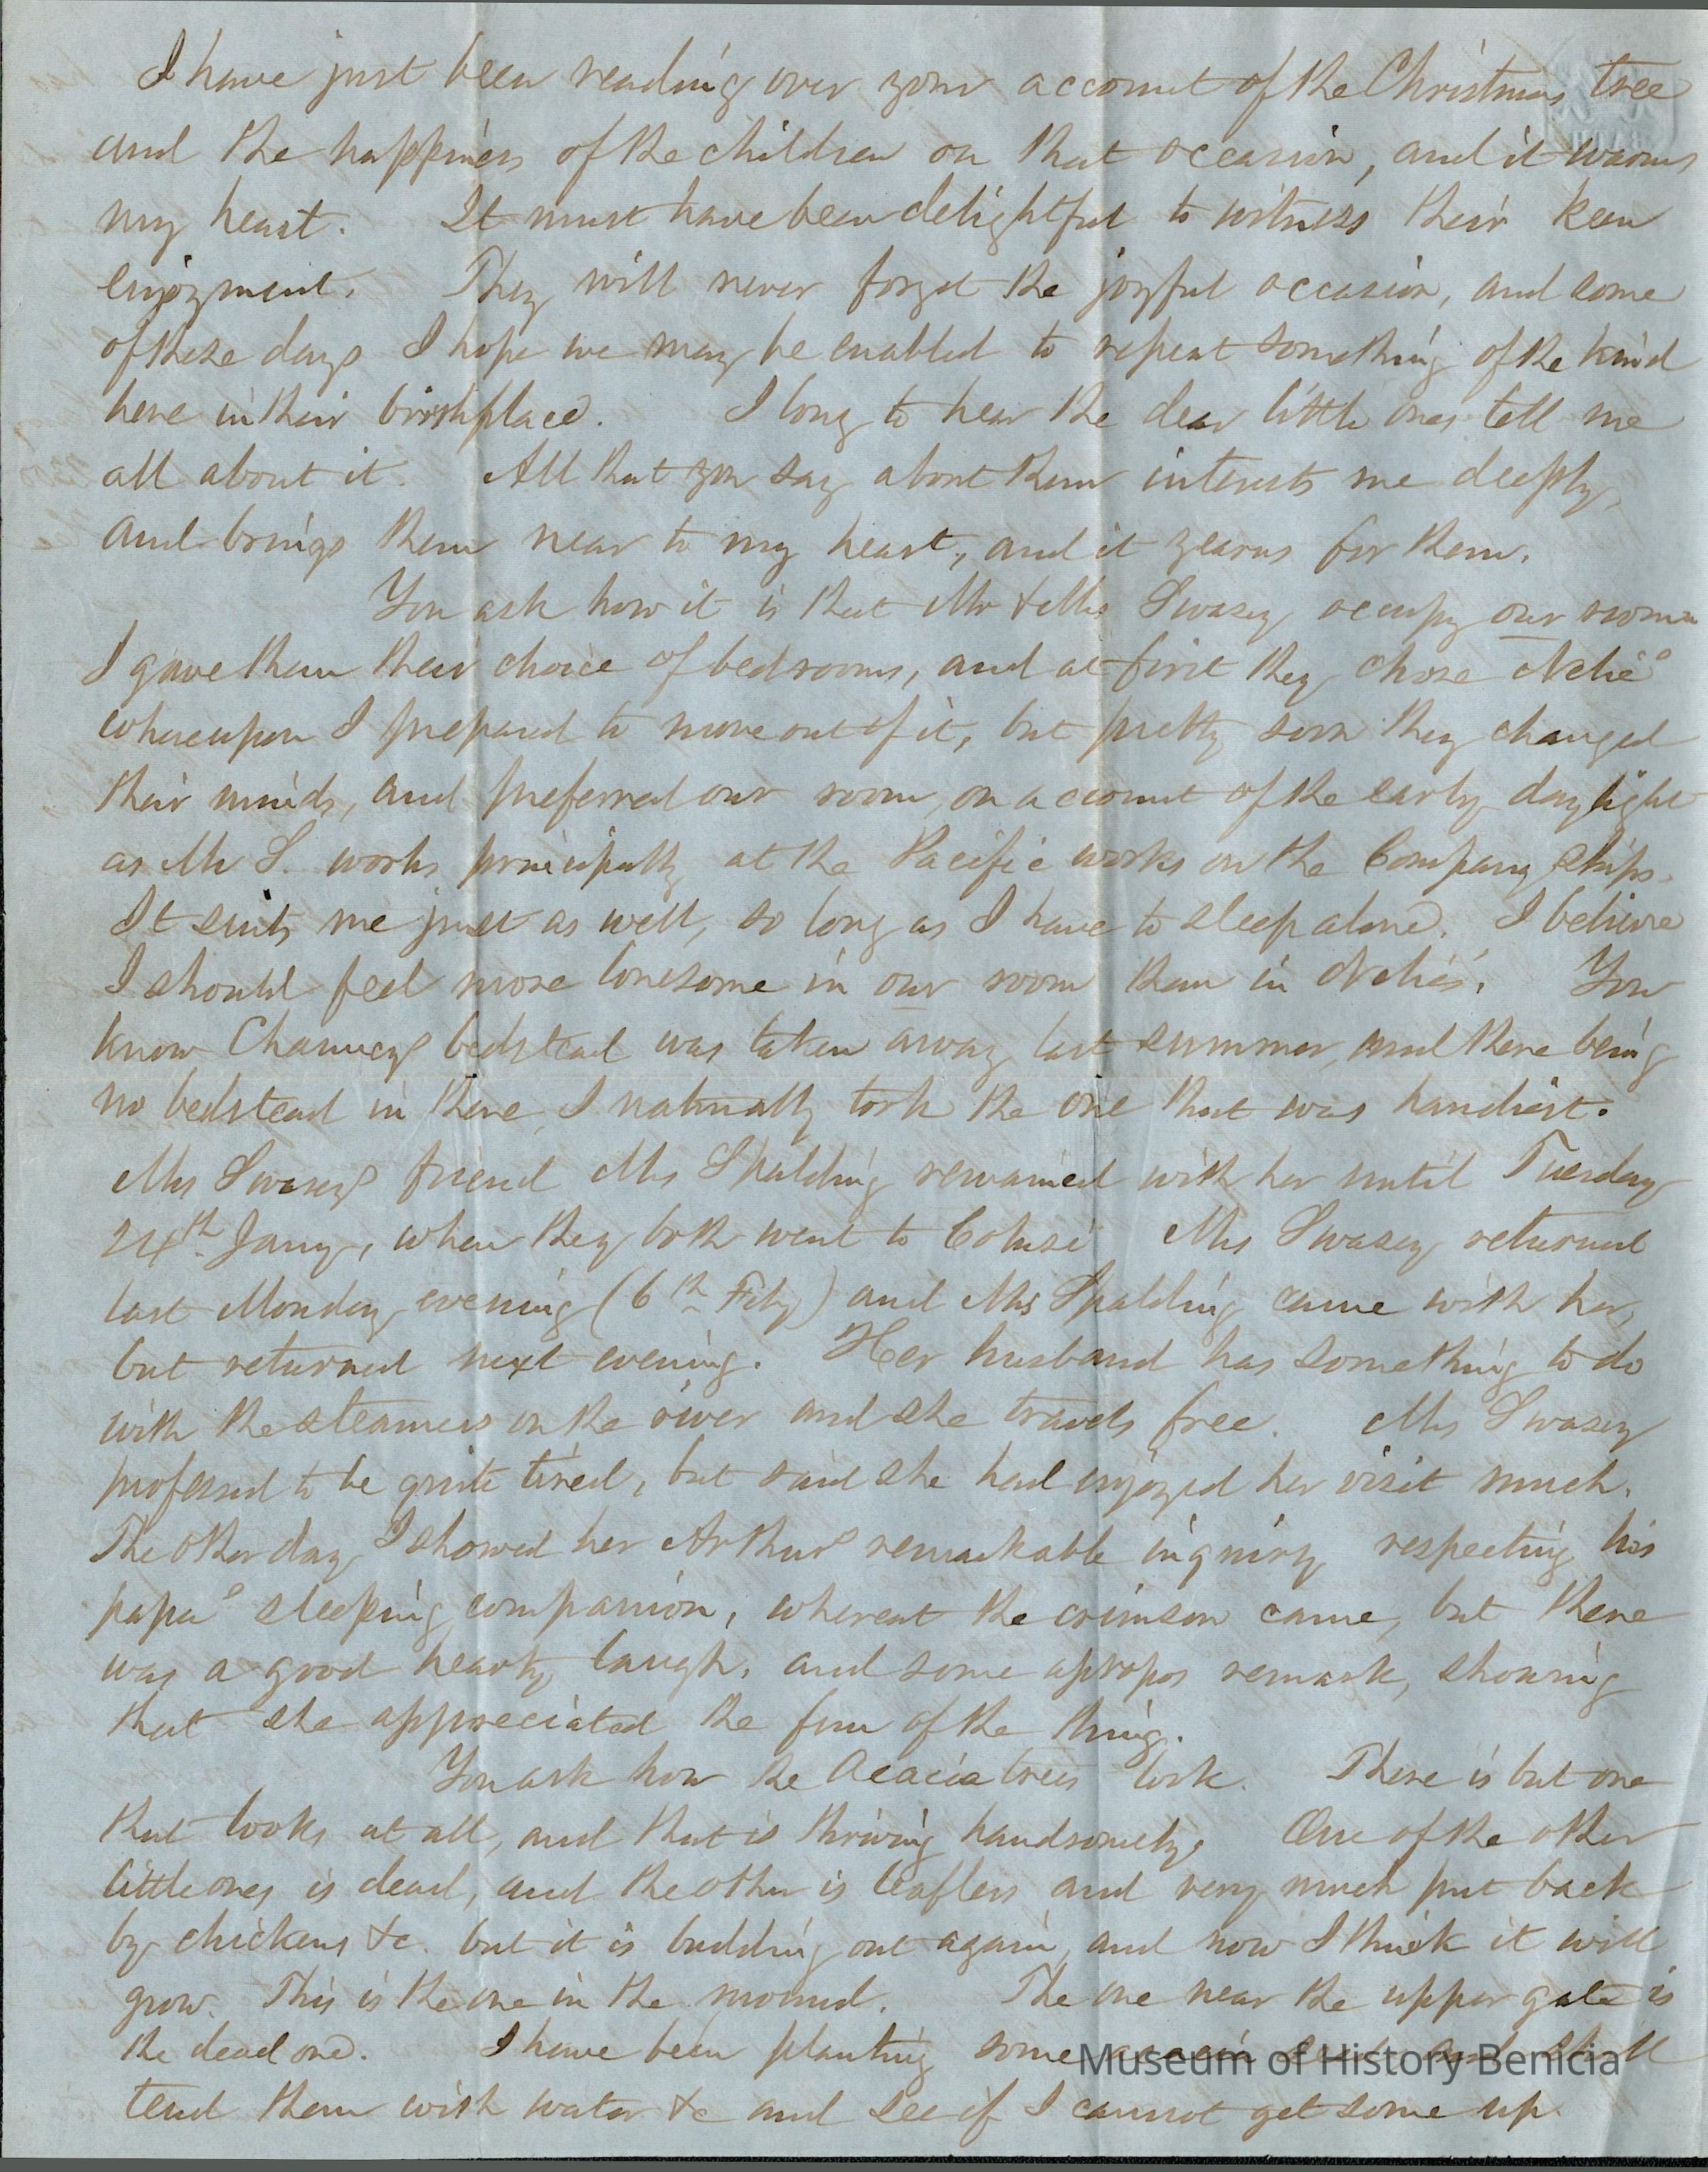 I have just been reading over your account of the Christmas tree
and the happiness of the children on that occasion, and it warms
my heart. It must have been delightful to witness their keen
enjoyment. They will never forget the joyful occasion, and some
of these days I hope we may be enabled to repeat something of the kind
here in their birthplace. I long to hear the dear little ones tell me
all about it. All that you say about them interests me deeply,
and brings them near to my heart, and it yearns for them.
You ask how it is that Mr & Mrs Swasey occupy our room
I gave them their choice of bedrooms, and at first they chose Nelie's
whereupon I prepared to move out of it, but pretty soon they changed
their minds, and preferred our room, on account of the early daylight
as Mr S. works principally at the Pacific works on the Company ships.
It suits me just as well, so long as I have to sleep alone. I believe
I should feel more lonesome in our room than in Nelie's. You
know Chauncey's bedstead was taken away last summer, and there being
no bedstead in there, I naturally took the one that was handiest.
Mrs Swasey's friend Mrs Spalding remained with her until Tuesday
24th Jany, when they both went to Colusi Mrs Swasey returned
last Monday evening (6th Feby) and Mrs Spalding came with her,
but returned next evening. Her husband has something to do
with the steamers on the river and she travels free. Mrs Swasey
professed to be quite tired, but said she had enjoyed her visit much.
The other day I showed her Arthur's remarkable inquiry respecting his
papa's sleeping companion, whereat the crimson came, but there
was a good hearty laugh, and some apropos remark, showing
that she appreciated the fun of the thing.
You ask how the Acacia trees look. There is but one
that looks at all, and that is thriving handsomely. One of the other
little ones is dead, and the other is leafless and very much put back
by chickens &c. but it is budding out again, and now I think it will
grow. This is the one in the mound. The one near the upper gate is
the dead one. I have been planting some
Museum of History Benicia
tend them with water &c and see if I cannot get some up.